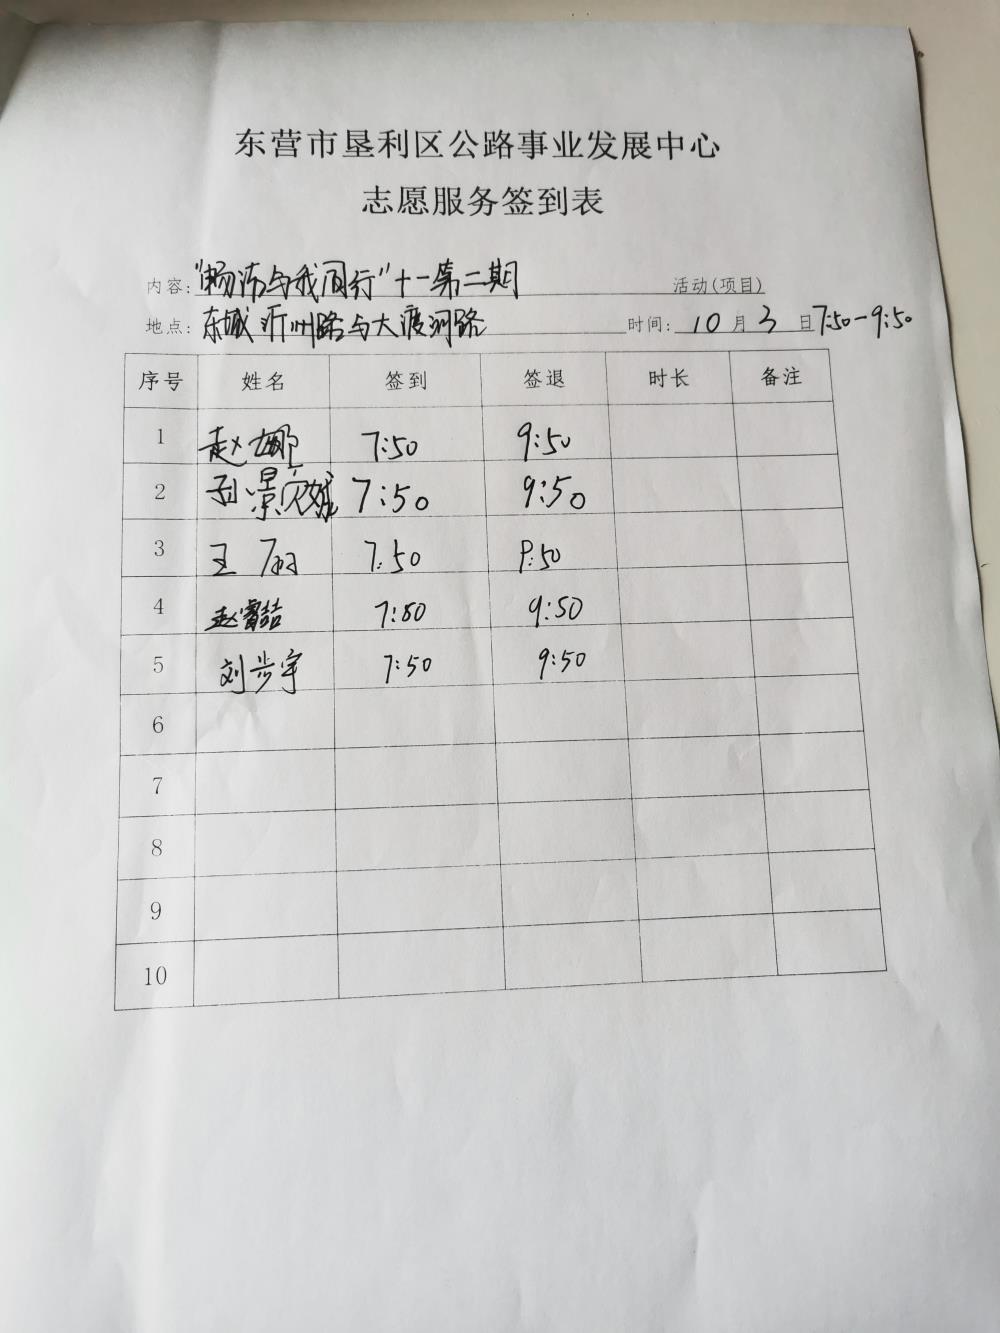 东营市垦利区公路事业发展中心
志愿服务签到表
内容:"畅济与我同行"十一第二期 活动(项目)
地点:东城沂州路与大渡河路 时间:10月3日7:50-9:50
序号 姓名 签到 签退 时长 备注
1 赵娜 7:50 9:50
2 孙景 7:50 9:50
3 王 7:50 9:50
4 赵睿喆 7:50 9:50
5 刘步宇 7:50 9:50
6
7
8
9
10